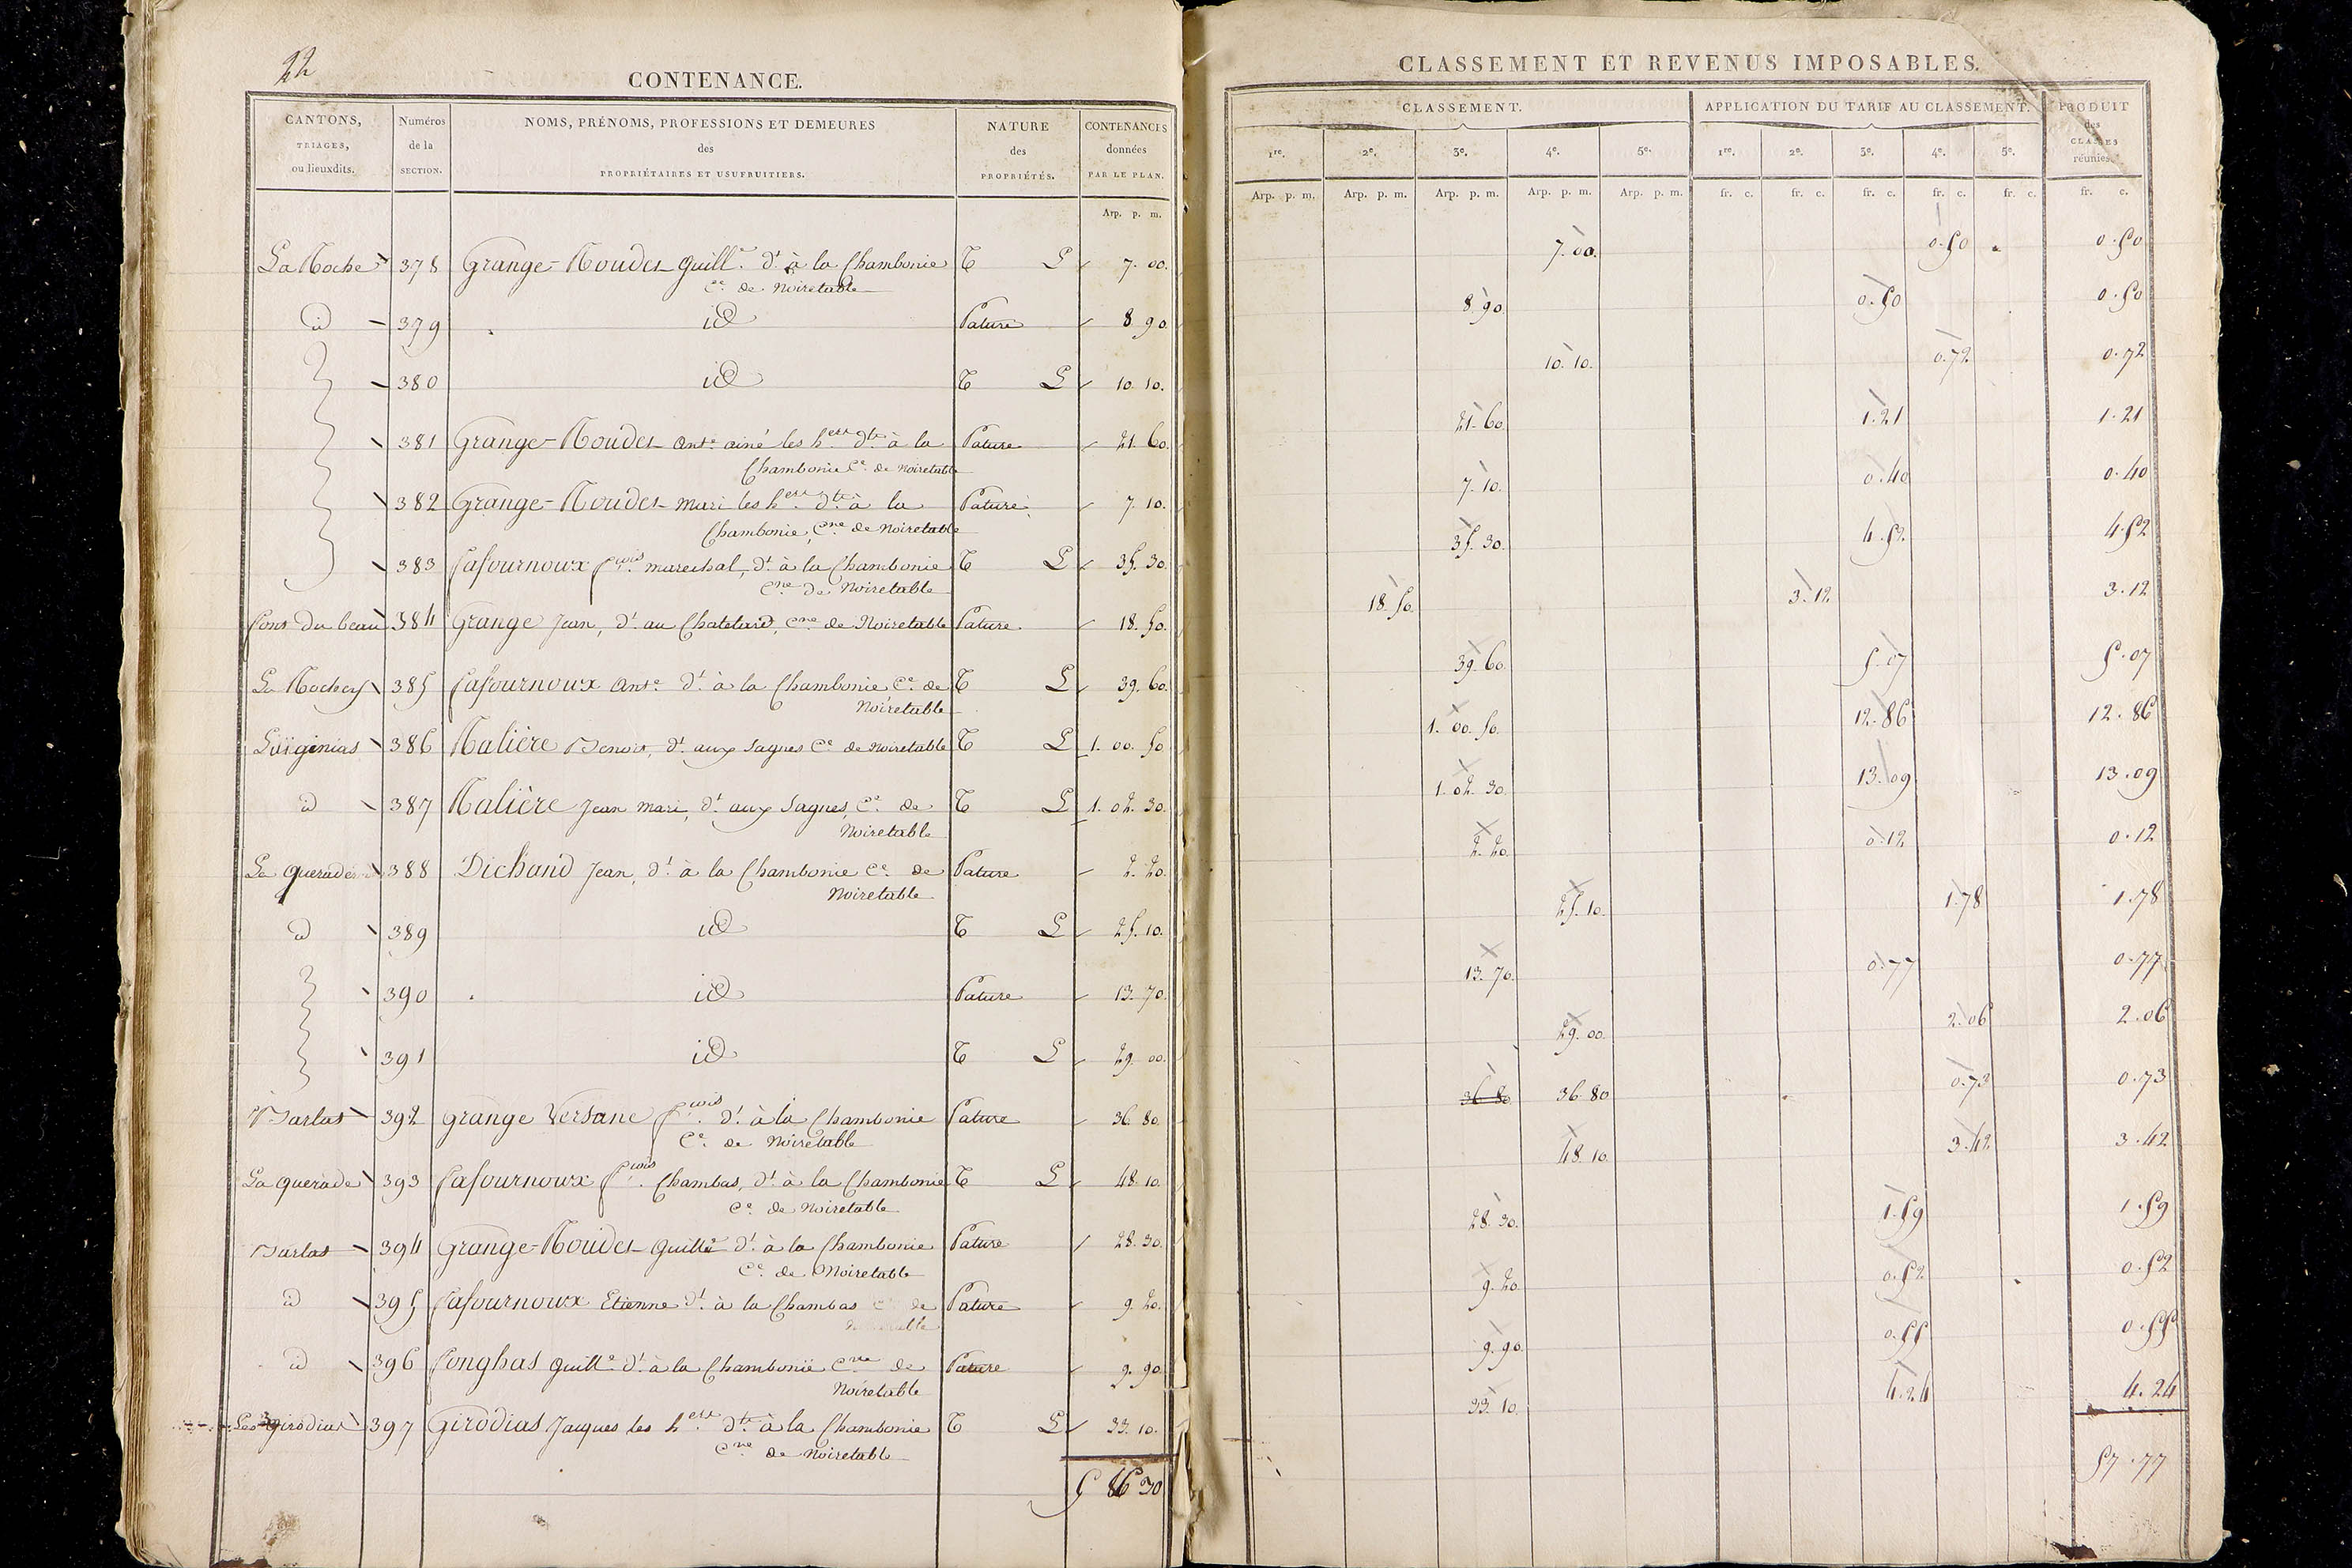 22
CONTENANCE.
CANTONS,
TRIAGES,
ou lieuxdits.
Numéros
de la
SECTION.
NOMS, PRÉNOMS, PROFESSIONS ET DEMEURES
des
PROPRIÉTAIRES ET USUFRUITIERS.
NATURE
des
PROPRIÉTÉS.
CONTENANCES
données
PAR LE PLAN.
Arp. p. m.
La Roche 378 Grange-Roudes Guille. dt. à la Chambonie T L 7. 00.
Ce. de Noiretable
id 379 id Pature 8 90
380 id T L 10. 10.
381 Grange-Roudes Ante. ainé les hers dts. à la Pature 21. 60.
Chambonie Ce. de Noiretable
382 Grange-Roudes Mari les hers dts. à la Pature 7. 10.
Chambonie, Cne. de Noiretable
383 Lafournoux fcois. marechal, dt. à la Chambonie T L 35. 30.
Cne. de Noiretable
384 Grange Jean, dt. au Chatelard, Cne. de Noiretable Pature 18. 50.
385 Lafournoux Ante. dt. à la Chambonie Ce. de T L 39. 60.
Noiretable
386 Ralière Benoit, dt. aux Sagnes Ce. de Noiretable T L 1. 00. 50
id 387 Ralière Jean Mari, dt. aux Sagnes, Ce. de T L 1. 02. 30.
Noiretable
388 Dichand Jean, dt. à la Chambonie Ce. de Pature 2. 20.
Noiretable
id 389 id T L 25. 10.
390 id Pature 13. 70.
391 id T L 29. 00.
Barlat 392 Grange Versane fcois. dt. à la Chambonie Pature 36. 80.
Ce. de Noiretable
La querade 393 Lafournoux fcois. Chambas, dt. à la Chambonie T L 48. 10.
Ce. de Noiretable
Barlat 394 Grange-Roudes Guille dt. à la Chambonie Pature 28. 30.
Ce. de Noiretable
id 395 Lafournoux Etienne dt. à la Chambas Ce. de Pature 9. 20.
id 396 Guille. dt. à la Chambonie Cne. de Pature 9. 90
Noiretable
Les Girodias 397 Girodias Jacques les hers dts. à la Chambonie T L 33. 10.
Cne. de Noiretable
5 86 30
CLASSEMENT ET REVENUS IMPOSABLES.
CLASSEMENT. APPLICATION DU TARIF AU CLASSEMENT. PRODUIT
des
CLASSES
réunies.
1re. 2e. 3e. 4e. 5e. 1re. 2e. 3e. 4e. 5e.
Arp. p. m. Arp. p. m. Arp. p. m. Arp. p. m. Arp. p. m. fr. c. fr. c. fr. c. fr. c. fr. c. fr. c.
7. 00. 0.50 0.50
8. 90. 0.50 0.50
10. 10. 0.72 0.72
21. 60. 1.21 1.21
7. 10. 0.40 0.40
35. 30. 4.52 4.52
18. 50. 3.12 3.12
39. 60. 5.07 5.07
1. 00. 50. 12.86 12.86
1. 02. 30. 13.09 13.09
2. 20. 0.12 0.12
25. 10. 1.78 1.78
13. 70. 0.77 0.77
29. 00. 2.06 2.06
36 80 36. 80 0.73 0.73
48. 10. 3.42 3.42
28. 30. 1.59 1.59
9. 20. 0.52 0.52
9. 90. 0.55 0.55
33. 10. 4.24 4.24
57.77